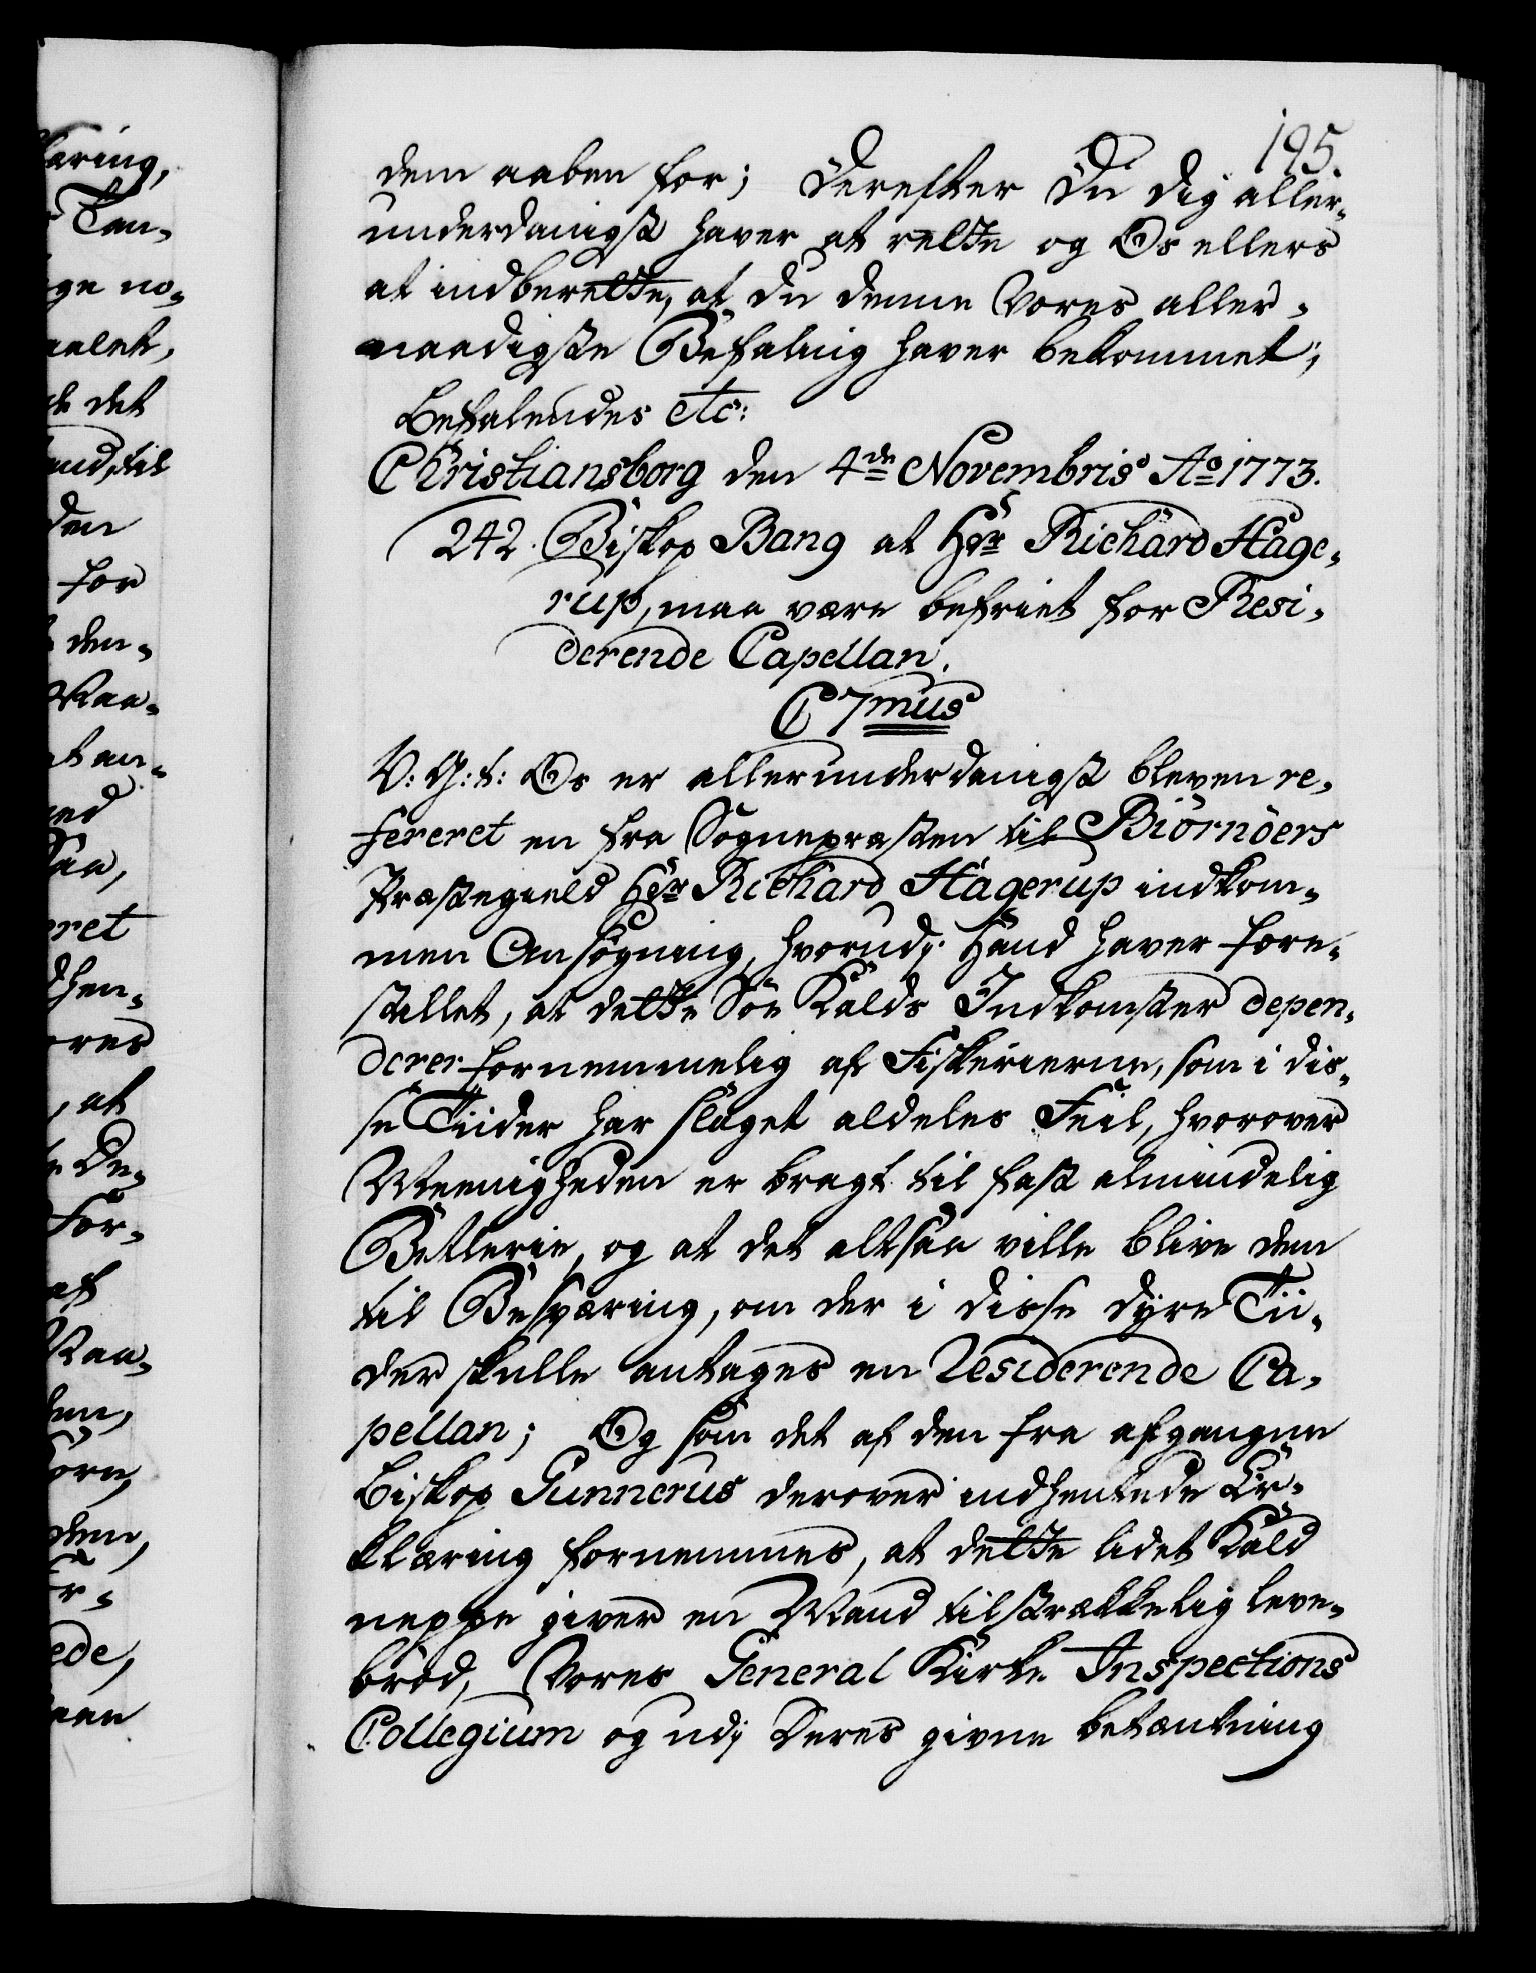 195.
dem aaben for; Derefter Du dig aller-
underdanigst haver at rette og Os ellers
at indberette, at du denne Vores aller-
naadigste Befaling haver bekommet;
Befalendes etc:
Christiansborg den 4de Novembris Ao 1773.
242. Biskop Bang at Hr Richard Hage-
rup, maa være befriet for Resi-
derende Capellan.
C 7mus
V: G: t: Os er allerunderdanigst bleven re-
fereret en fra Sognepræsten til Biörnöers
Præstegield Hr Richard Hagerup indkom-
men Ansögning, hvorudj Hand haver fore-
stillet, at dette Söe Kalds Indkomster depen-
derer fornemmelig af Fiskerierne, som i dis-
se Tiider har slaget aldeles Feil, hvorover
Meenigheden er bragt til fast almindelig
Betlerie, og at det altsaa ville blive dem
til Besværing, om der i disse dyre Tii-
der skulle antages en Residerende Ca-
pellan; Og som det af den fra afgangne
Biskop Gunnerus derover indhentede Er-
klæring fornemmes, at dette lidet Kald
neppe giver en Mand tilstrækkelig leve-
bröd, Vores General Kirke Inspections
Collegium og udj Deres givne betænkning